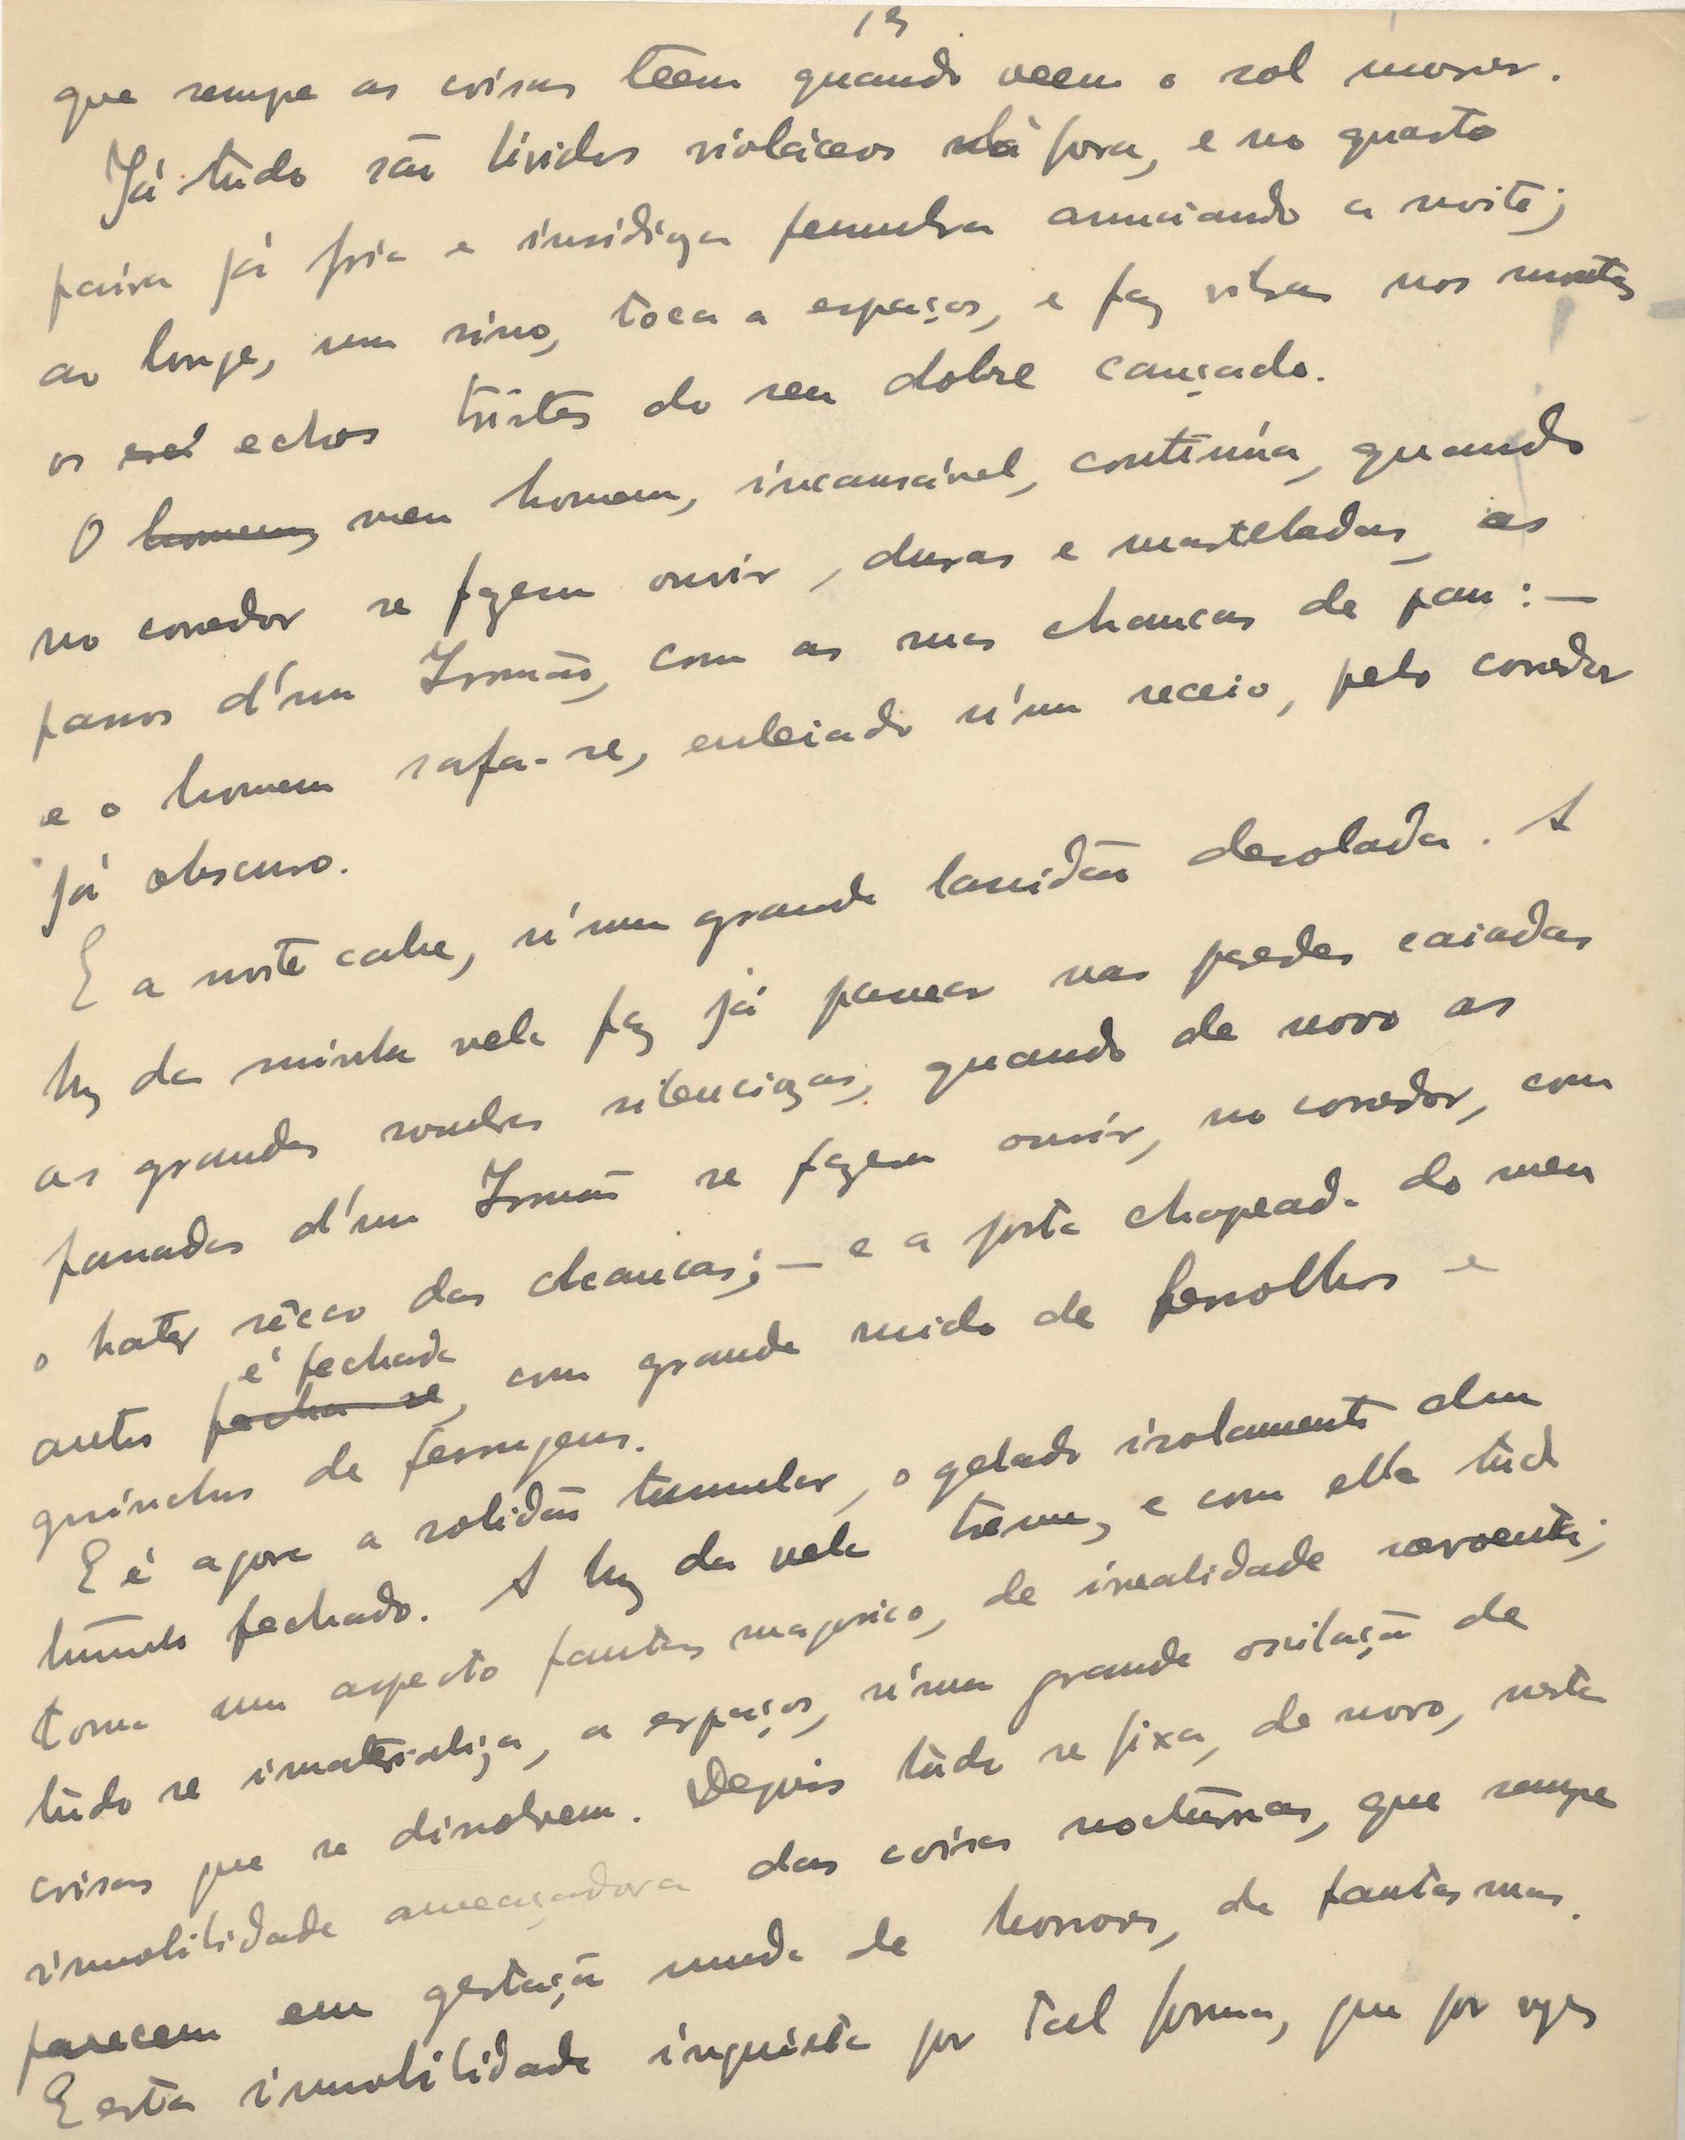 13
que sempre as coisas teem quando veem o sol morrer.
Já tudo são lividos violáceos lá fora, e no quarto
paira já fria e insidiosa penumbra annunciando a noite;
ao longe, um sino, toca a espaços, e faz vibrar nos montes
os echos tristes do seu dobre cançado.
O homem, meu homem, incansável, continúa, quando
no corredor se fazem ouvir, duras e marteladas, as
passos d'um Irmão, com as suas chancas de pau: —
e o homem safa-se, enleiado n'um receio, pelo corredor
já obscuro.
E a noite cahe, n'uma grande lassidão desolada. A
luz da minha vela faz já passear nas paredes caiadas
as grandes sombras silenciosas, quando de novo as
passadas d'um Irmão se fazem ouvir, no corredor, com
o bater sêcco das chancas; — e a porta chapeada do meu
é fechada
antro fecha-se, com grande ruido de ferrolhos e
guinchos de ferrugens.
E é agora a solidão tumular, o gelado isolamento dum
túmulo fechado. A luz da vela treme, e com ella tudo
toma um aspecto fantasmagorico, de irrealidade
tudo se imaterializa, a espaços, n'uma grande oscilação de
coisas que se dissolvem. Depois tudo se fixa, de novo, nesta
immobilidade ameaçadora das coisas nocturnas, que sempre
parecem em gestação muda de horrores, de fantasmas.
E esta immobilidade inquieta por tal forma, que por vezes